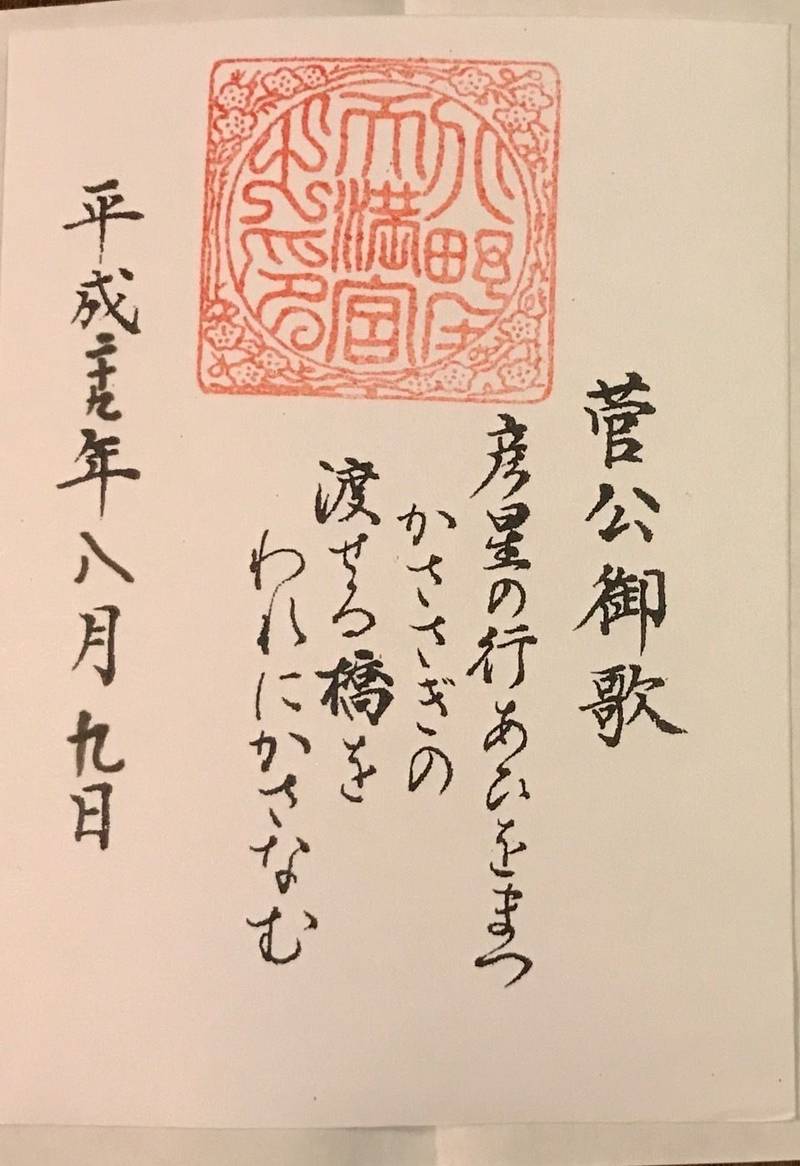 野
天満宮
之印
菅公御歌
彦星の行あひをまつ
かささぎの
渡せる橋を
われにかさなむ
平成二十九年八月九日